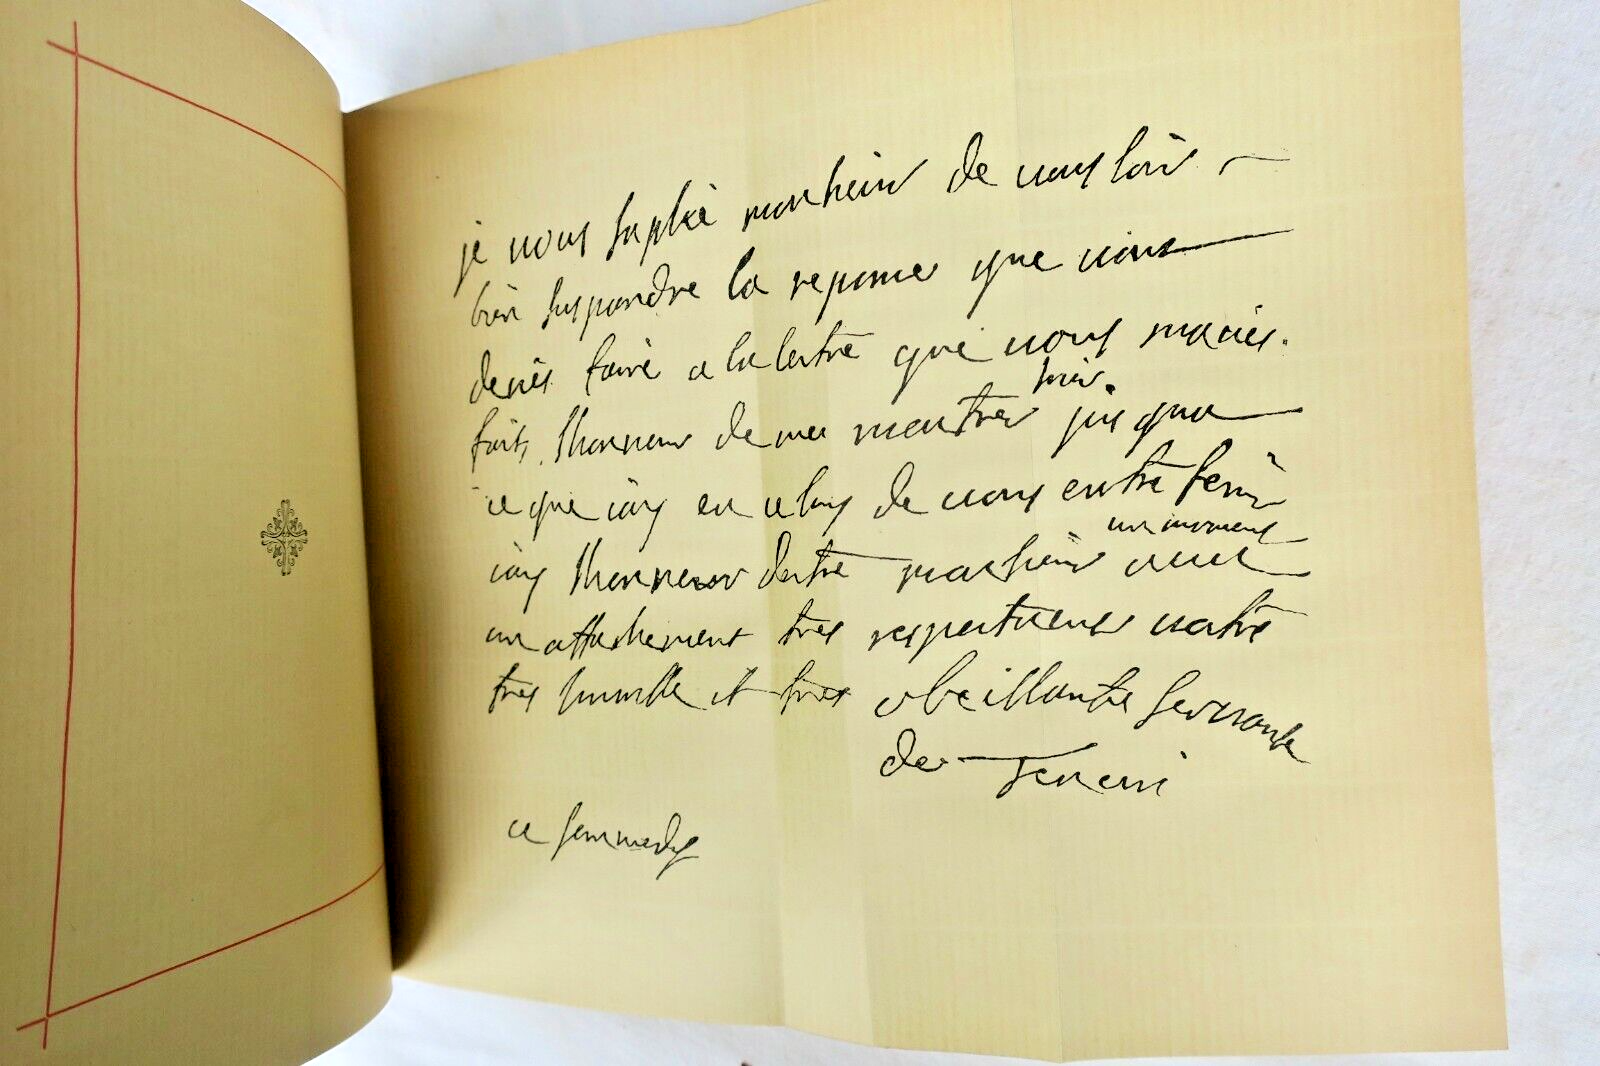 je vous suplie monsieur de vouloir
bien suspandre la reponce que vous
devies faire a la lestre que vous mavies
fait lhonneur de me montrer hier jus qua
ce que iay eu celuy de vous entretenir
iay lhonneur destre monsieur avec un moment
un attachement tres respectueux vostre
tres humble et tres obeissante servante
de Tencin
ce sammedy